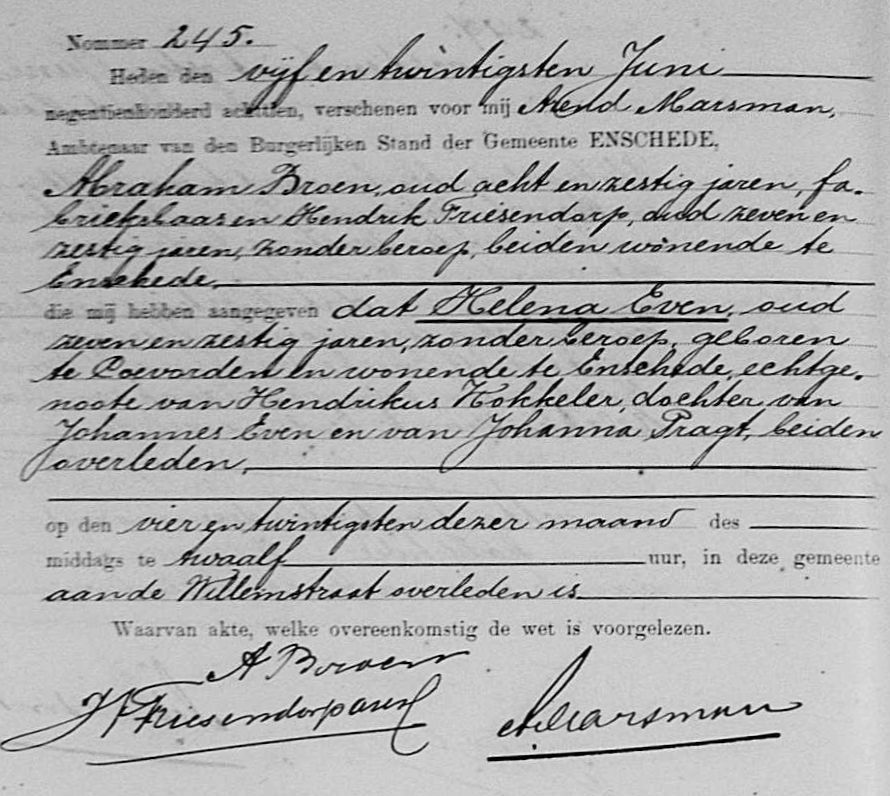 Nommer 245.
Heden den vijf en twintigsten Juni
negentienhonderd achttien, verschenen voor mij Arend Marsman,
Ambtenaar van den Burgerlijken Stand der Gemeente ENSCHEDE,
Abraham Broen, oud acht en zestig jaren, fa-
brieksbaas en Hendrik Friesendorp, oud zeven en
zestig jaren, zonder beroep, beiden wonende te
Enschede,
die mij hebben aangegeven dat Helena Even, oud
zeven en zestig jaren, zonder beroep, geboren
te Coevorden en wonende te Enschede, echtge-
noote van Hendrikus Kokkeler, dochter van
Johannes Even en van Johanna Pragt, beiden
overleden,
op den vier en twintigsten dezer maand des
middags te twaalf uur, in deze gemeente
aan de Willemstraat overleden is
Waarvan akte, welke overeenkomstig de wet is voorgelezen.
A Broen
H Friesendorp
A Marsman